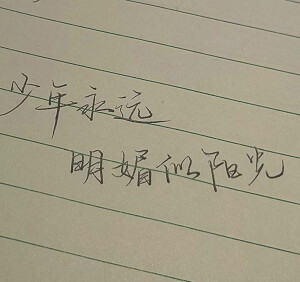 少年永远
明媚似阳光